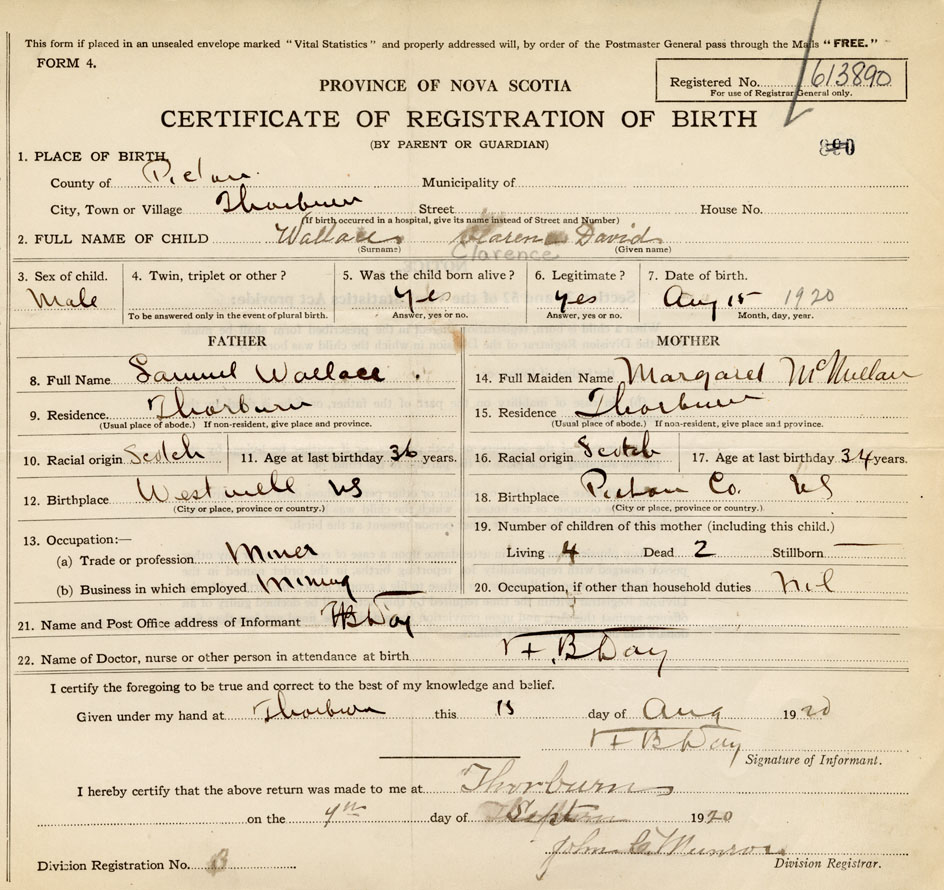 This form if placed in an unsealed envelope marked "Vital Statistics" and properly addressed will, by order of the Postmaster General pass through the Mails "FREE."
FORM 4.
PROVINCE OF NOVA SCOTIA
Registered No. 613890
For use of Registrar General only.
CERTIFICATE OF REGISTRATION OF BIRTH
(BY PARENT OR GUARDIAN)
890
1. PLACE OF BIRTH
County of Pictou Municipality of
City, Town or Village Thorburn Street House No.
(If birth occurred in a hospital, give its name instead of Street and Number)
2. FULL NAME OF CHILD Wallace Clarence David
(Surname) (Given name)
Clarence
3. Sex of child. 4. Twin, triplet or other? 5. Was the child born alive? 6. Legitimate? 7. Date of birth.
Male Yes Yes Aug 15 1920
To be answered only in the event of plural birth. Answer, yes or no. Answer, yes or no. Month, day, year.
FATHER MOTHER
8. Full Name Samuel Wallace 14. Full Maiden Name Margaret McMullan
9. Residence. Thorburn 15. Residence Thorburn
(Usual place of abode.) If non-resident, give place and province. (Usual place of abode.) If non-resident, give place and province.
10. Racial origin Scotch 11. Age at last birthday 36 years. 16. Racial origin Scotch 17. Age at last birthday 34 years.
12. Birthplace Westville NS 18. Birthplace Pictou Co. NS
(City or place, province or country.) (City or place, province or country.)
13. Occupation:— 19. Number of children of this mother (including this child.)
(a) Trade or profession Miner Living 4 Dead 2 Stillborn —
(b) Business in which employed Mining 20. Occupation, if other than household duties Nil
21. Name and Post Office address of Informant B Day
22. Name of Doctor, nurse or other person in attendance at birth F. B Day
I certify the foregoing to be true and correct to the best of my knowledge and belief.
Given under my hand at Thorburn this 15 day of Aug 1920
F B Day
Signature of Informant.
I hereby certify that the above return was made to me at Thorburn
on the day of Sept 1920
John Munro
Division Registrar.
Division Registration No.